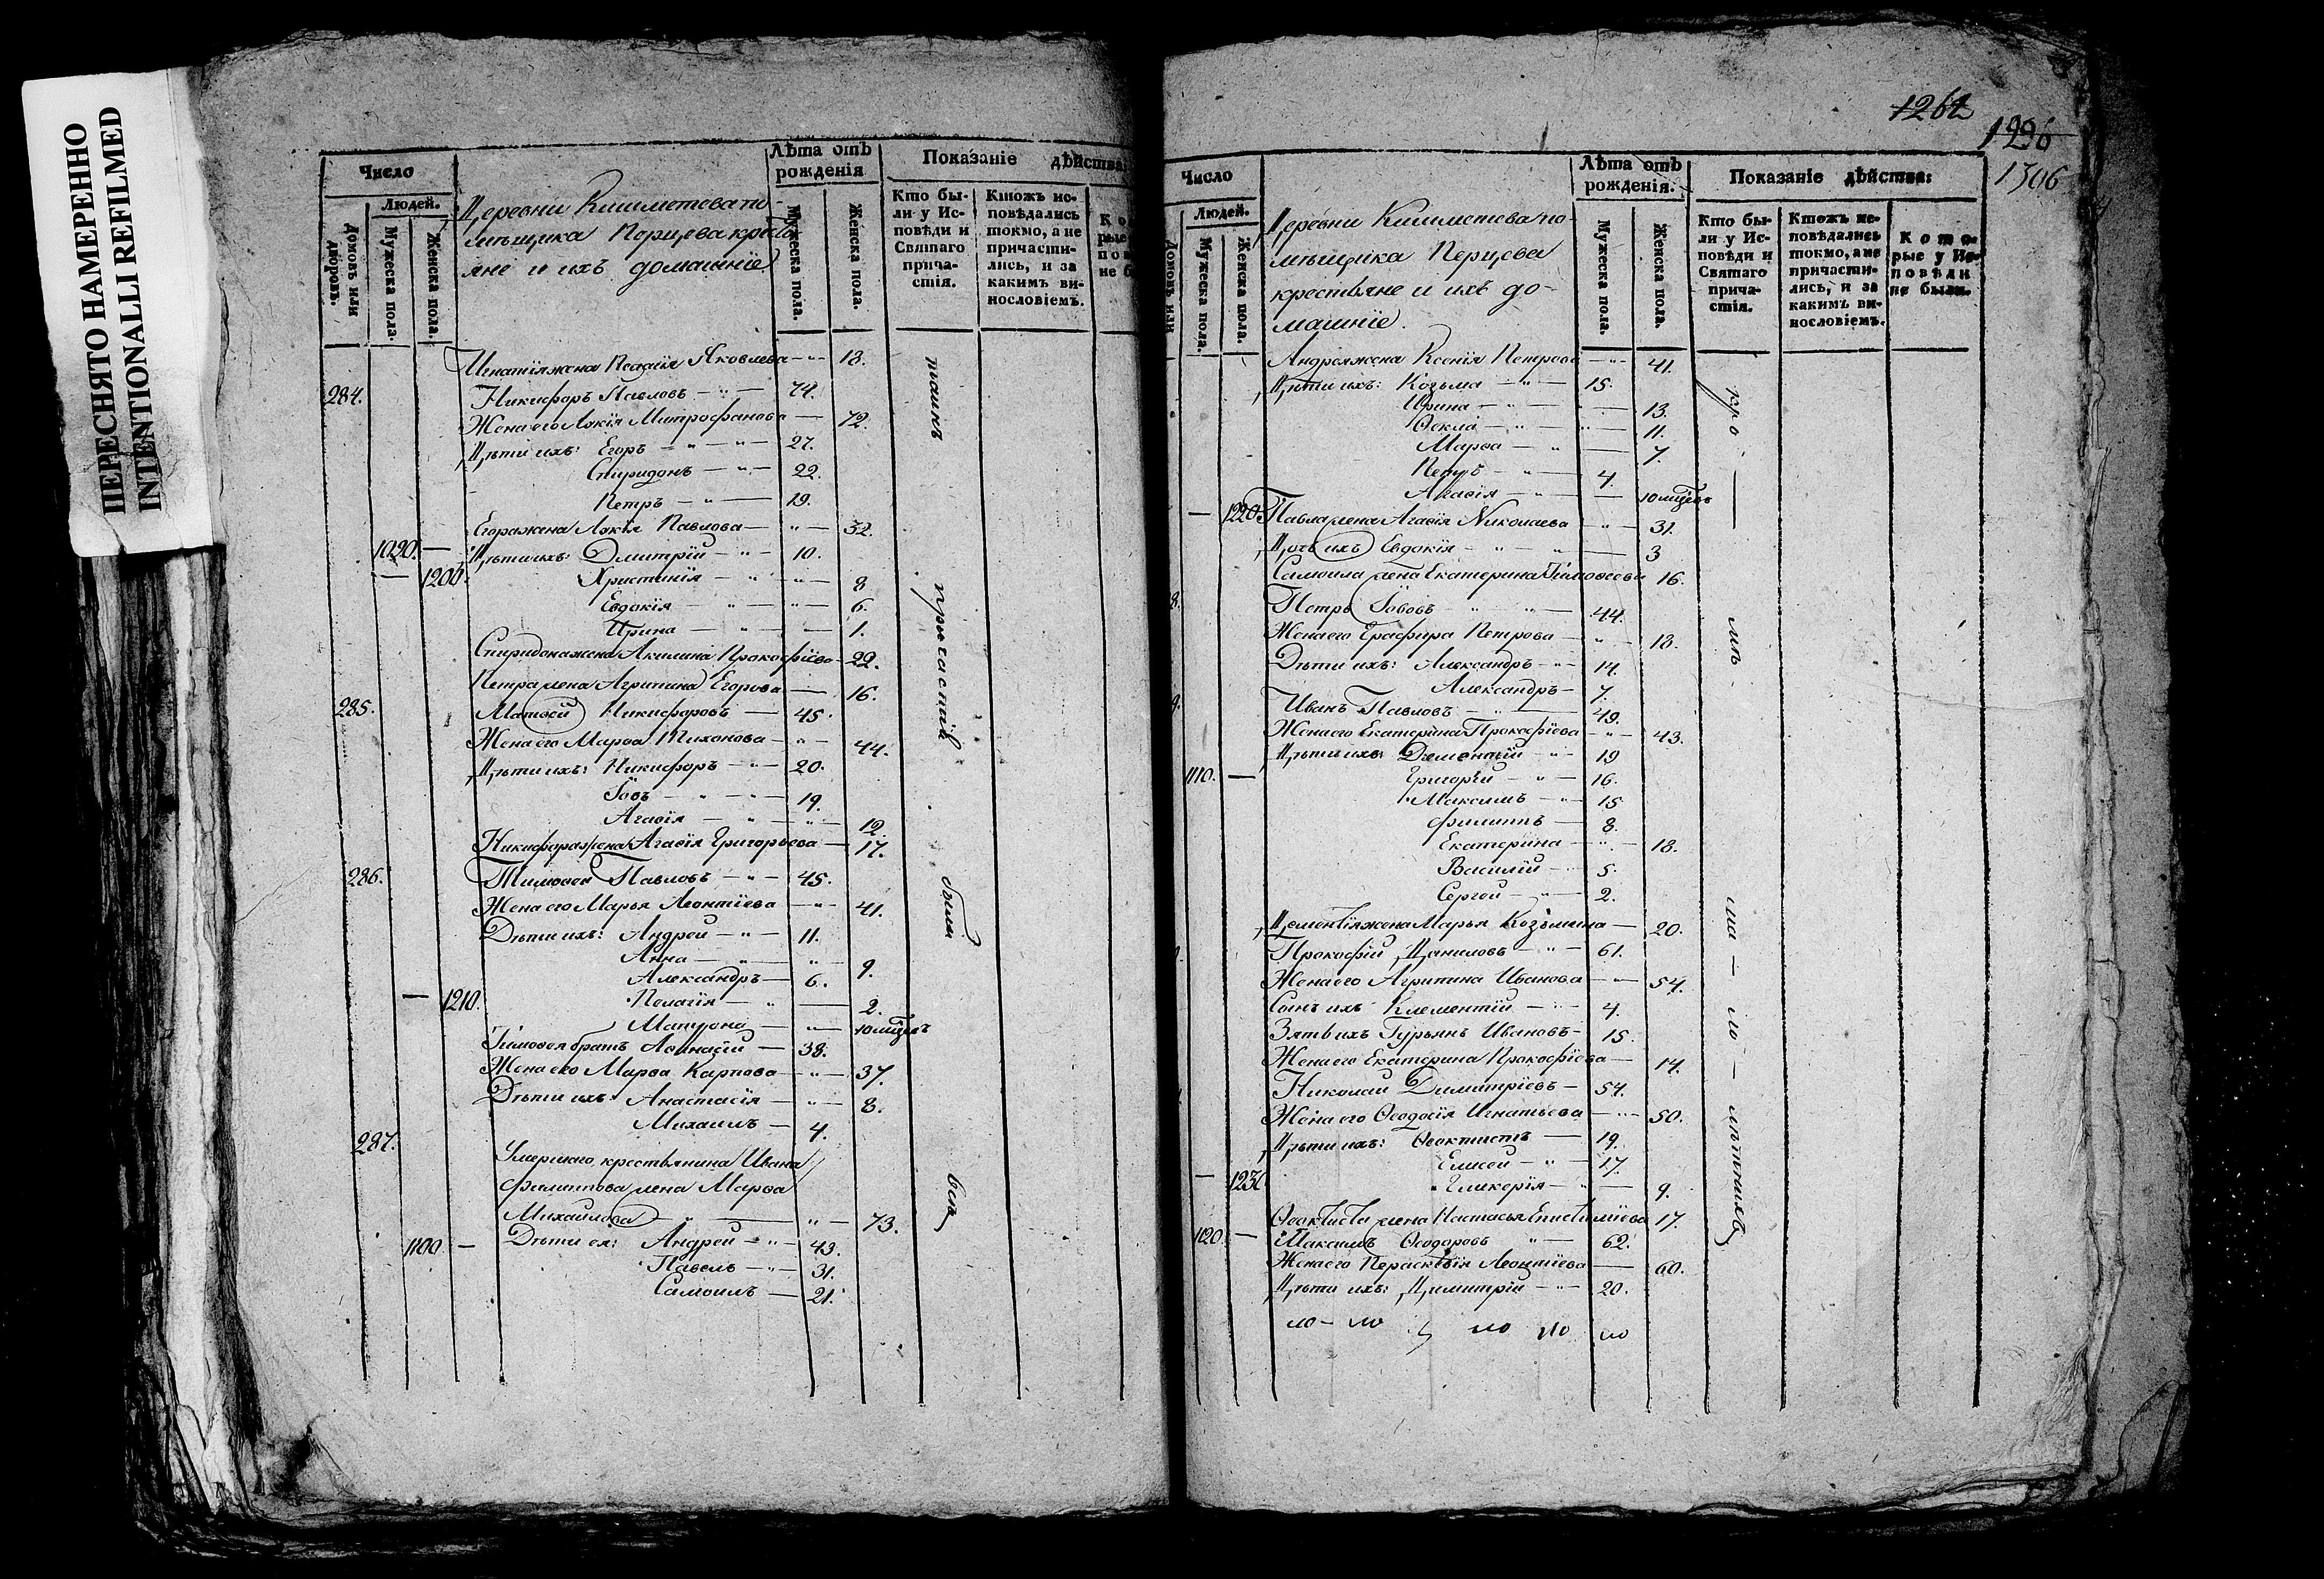 ПЕРЕСНЯТО НАМЕРЕННО
INTENTIONALLI REFILMED
Число
Людей.
Домовъ или дворовъ.
Мужеска пола.
Женска пола.
Деревни Кишметева по-
мѣщика Перцева кресть
яне и ихъ домашніе
Лѣта отъ рожденія
Мужеска пола.
Женска пола.
Показаніе дѣйства
Кто бы-
ли у Ис-
повѣди и
Святаго
прича-
стія.
Ктожъ ис-
повѣдались
токмо, а не
причасти-
лись, и за
какимъ ви-
нословіемъ.
Игнатія жена Яковлева 18.
284. Никифоръ Павловъ 74.
Жена его Лукія Митрофанова 72.
Дѣти ихъ: Егоръ 27.
Спиридонъ 22.
Петръ 19.
Егора жена Лукія Павлова 32.
1090. Дѣти ихъ: Дмитрій 10.
1200. Христинія 8
Евдокія 6.
Ирина 1.
Спиридона жена Акилина Прокофіева 22.
Петра жена Агрипина Егорова 16.
285. Матвей Никифоровъ 45.
Жена его Марѳа Тихонова 44.
Дѣти ихъ: Никифоръ 20.
Іовъ 19.
Агаѳія 12.
Никифора жена Агаѳія Григорьева 17.
286. Тимоѳей Павловъ 45.
Жена его Марья Леонтіева 41.
Дѣти ихъ: Андрей 11.
Анна 9.
Александръ 6.
1210. Пелагія 2.
Матрона 10 мцевъ
Тимоѳея братъ Аѳанасій 38.
Жена его Марѳа Карпова 37.
Дѣти ихъ: Анастасія 8.
Михаилъ 4.
287. Умершаго крестьянина Ивана
Филиппова жена Марѳа
Михайлова 73.
1100. Дѣти ея: Андрей 43.
Павелъ 31.
Самоилъ 21.
причастія
были
всѣ
1262
1296
1306
Число
Людей.
Домовъ или
Мужеска пола.
Женска пола.
Деревни Кишметева по-
мѣщика Перцева
крестьяне и ихъ до-
машніе.
Лѣта отъ рожденія.
Мужеска пола.
Женска пола.
Показаніе дѣйства:
Кто бы-
ли у Ис-
повѣди и
Святаго
прича-
стія.
Ктожъ ис-
повѣдались
токмо, а не
причасти-
лись, и за
какимъ ви-
нословіемъ.
Кото-
рые у Ис-
повѣди
не были.
Андрея жена Ксенія Петрова 41.
Дѣти ихъ: Козьма 15.
Ирина 13.
Ѳекла 11.
Марѳа 7.
Петръ 4.
Агаѳія 10 мцевъ
1220 Павла жена Агаѳія Николаева 31.
Дочь ихъ Евдокія 3
Самоила жена Екатерина Тимоѳеева 16.
Петръ Іововъ 44.
Жена его Петрова 18.
Дѣти ихъ: Александръ 14.
Александръ 7.
Иванъ Павловъ 49.
Жена его Екатерина Прокофіева 43.
Дѣти ихъ: Дементій 19
1110. Григорій 16.
Максимъ 15
Филиппъ 8.
Екатерина 18.
Василій 5.
Сергей 2.
Дементія жена Марья Козьмина 20.
Прокофій Даниловъ 61.
Жена его Агрипина Иванова 54.
Сынъ ихъ Клементій 4.
Зять ихъ Гурьянъ Ивановъ 15.
Жена его Екатерина Прокофіева 14.
Николай Димитріевъ 54.
Жена его Ѳеодосія Игнатьева 50.
Дѣти ихъ: Ѳеоктистъ 19.
Елисей 17.
1230 Гликерія 9.
Ѳеоктиста жена Настасья 17.
1120. Максимъ Ѳеодоровъ 62.
Жена его Параскевія Леонтіева 60.
Дѣти ихъ: Димитрій 20.